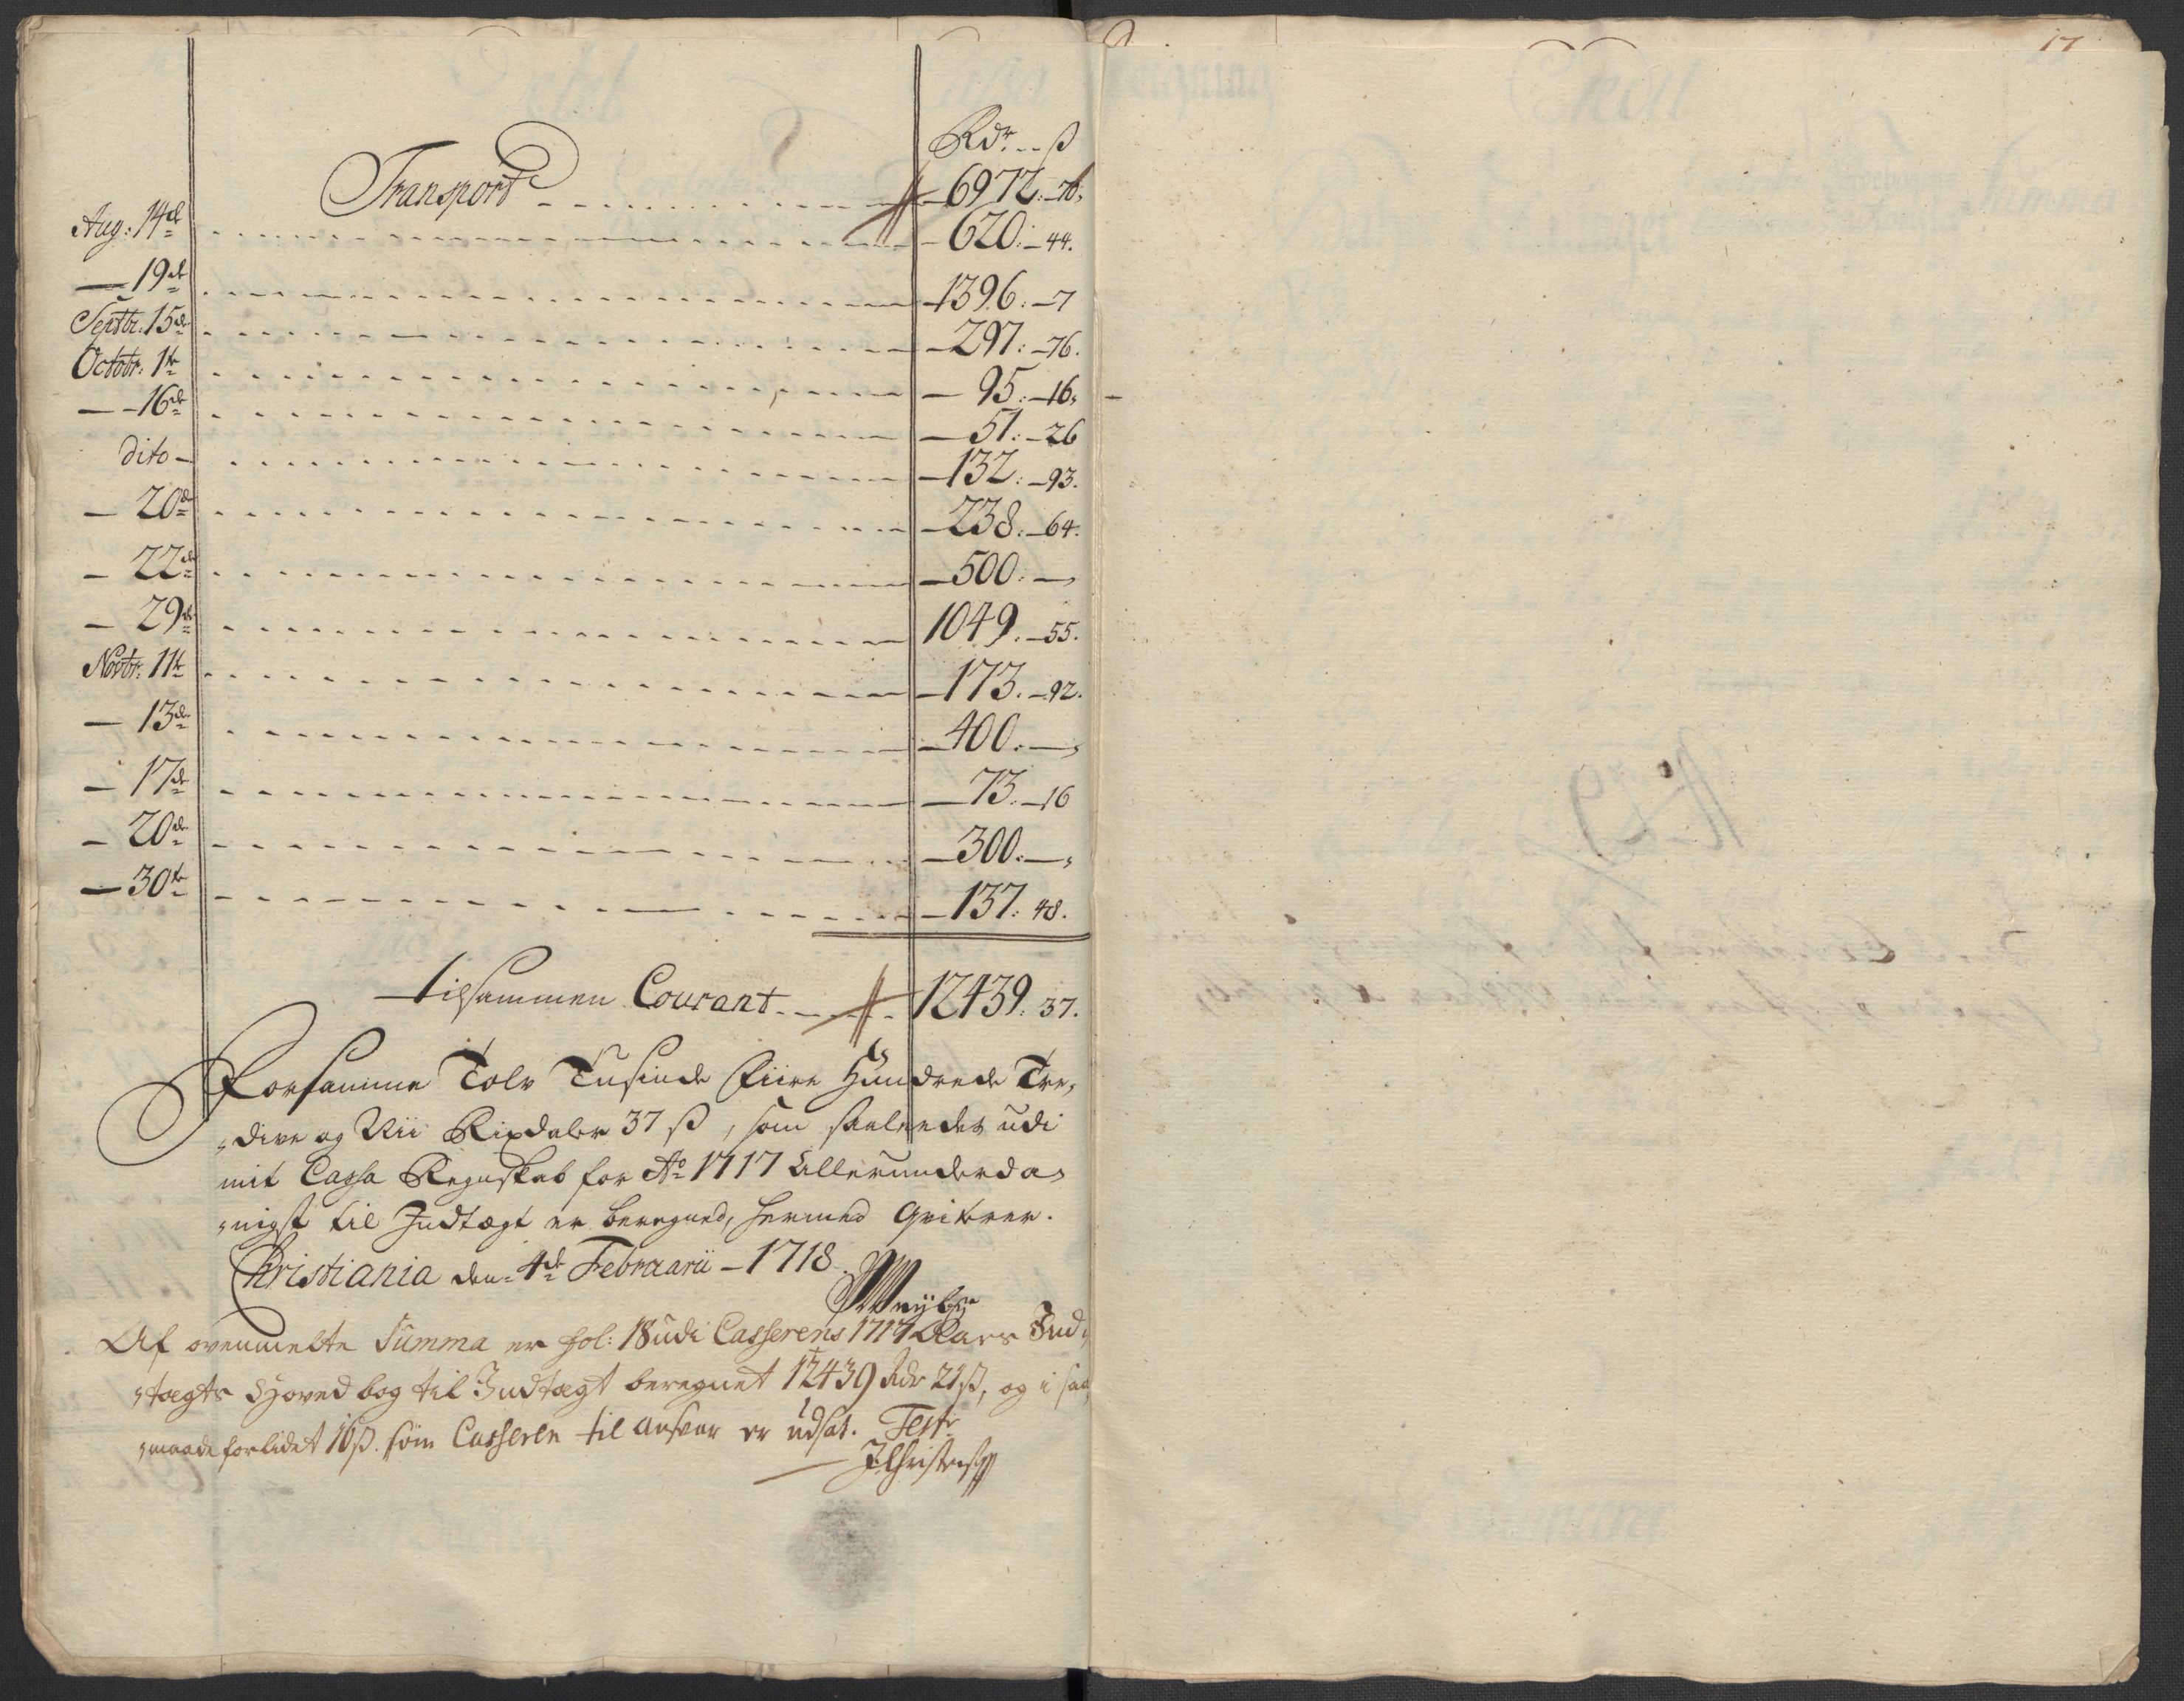 17
Rdr. ß
Transport 6972. 76.
Aug: 14de 620. 44.
19de 1396. 7
Septbr. 15de 297. 76.
Octobr. 1te 95. 16.
16de 51. 26
dito 132. 93.
20de 238. 64.
22de 500. —
29de 1049. 55.
Novbr. 11te 173. 92.
13de 400. —
17de 73. 16
20de 300. —
30te 137. 48.
tilsammen Courant 12439. 37.
Forsamme Tolv Tusinde Fiire Hundrede Tre,
dive og Nii Rixdaler 37 ß, som saaledes udi
mit Cassa Regnskab for Ao 1717 Allerunderda,
nigst til Indtægt er beregned, hermed Qviterer.
Christiania den 4de Februarii 1718.
Af ovenmelte Summa er Fol: 18 udi Casserens 1717 Aars Ind,
tægts Hoved bog til Indtægt beregnet 12439 Rdr 21 ß, og i saa
maade forlidet 16 ß. som Casseren til ansvar er udsat. Test.
JChristens
No 29